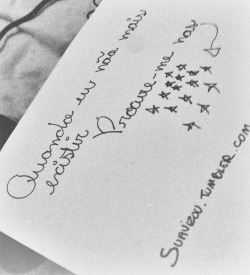 Quando eu não mais
existir Procure-me nas
SUAVIZOU.TUMBLER.COM